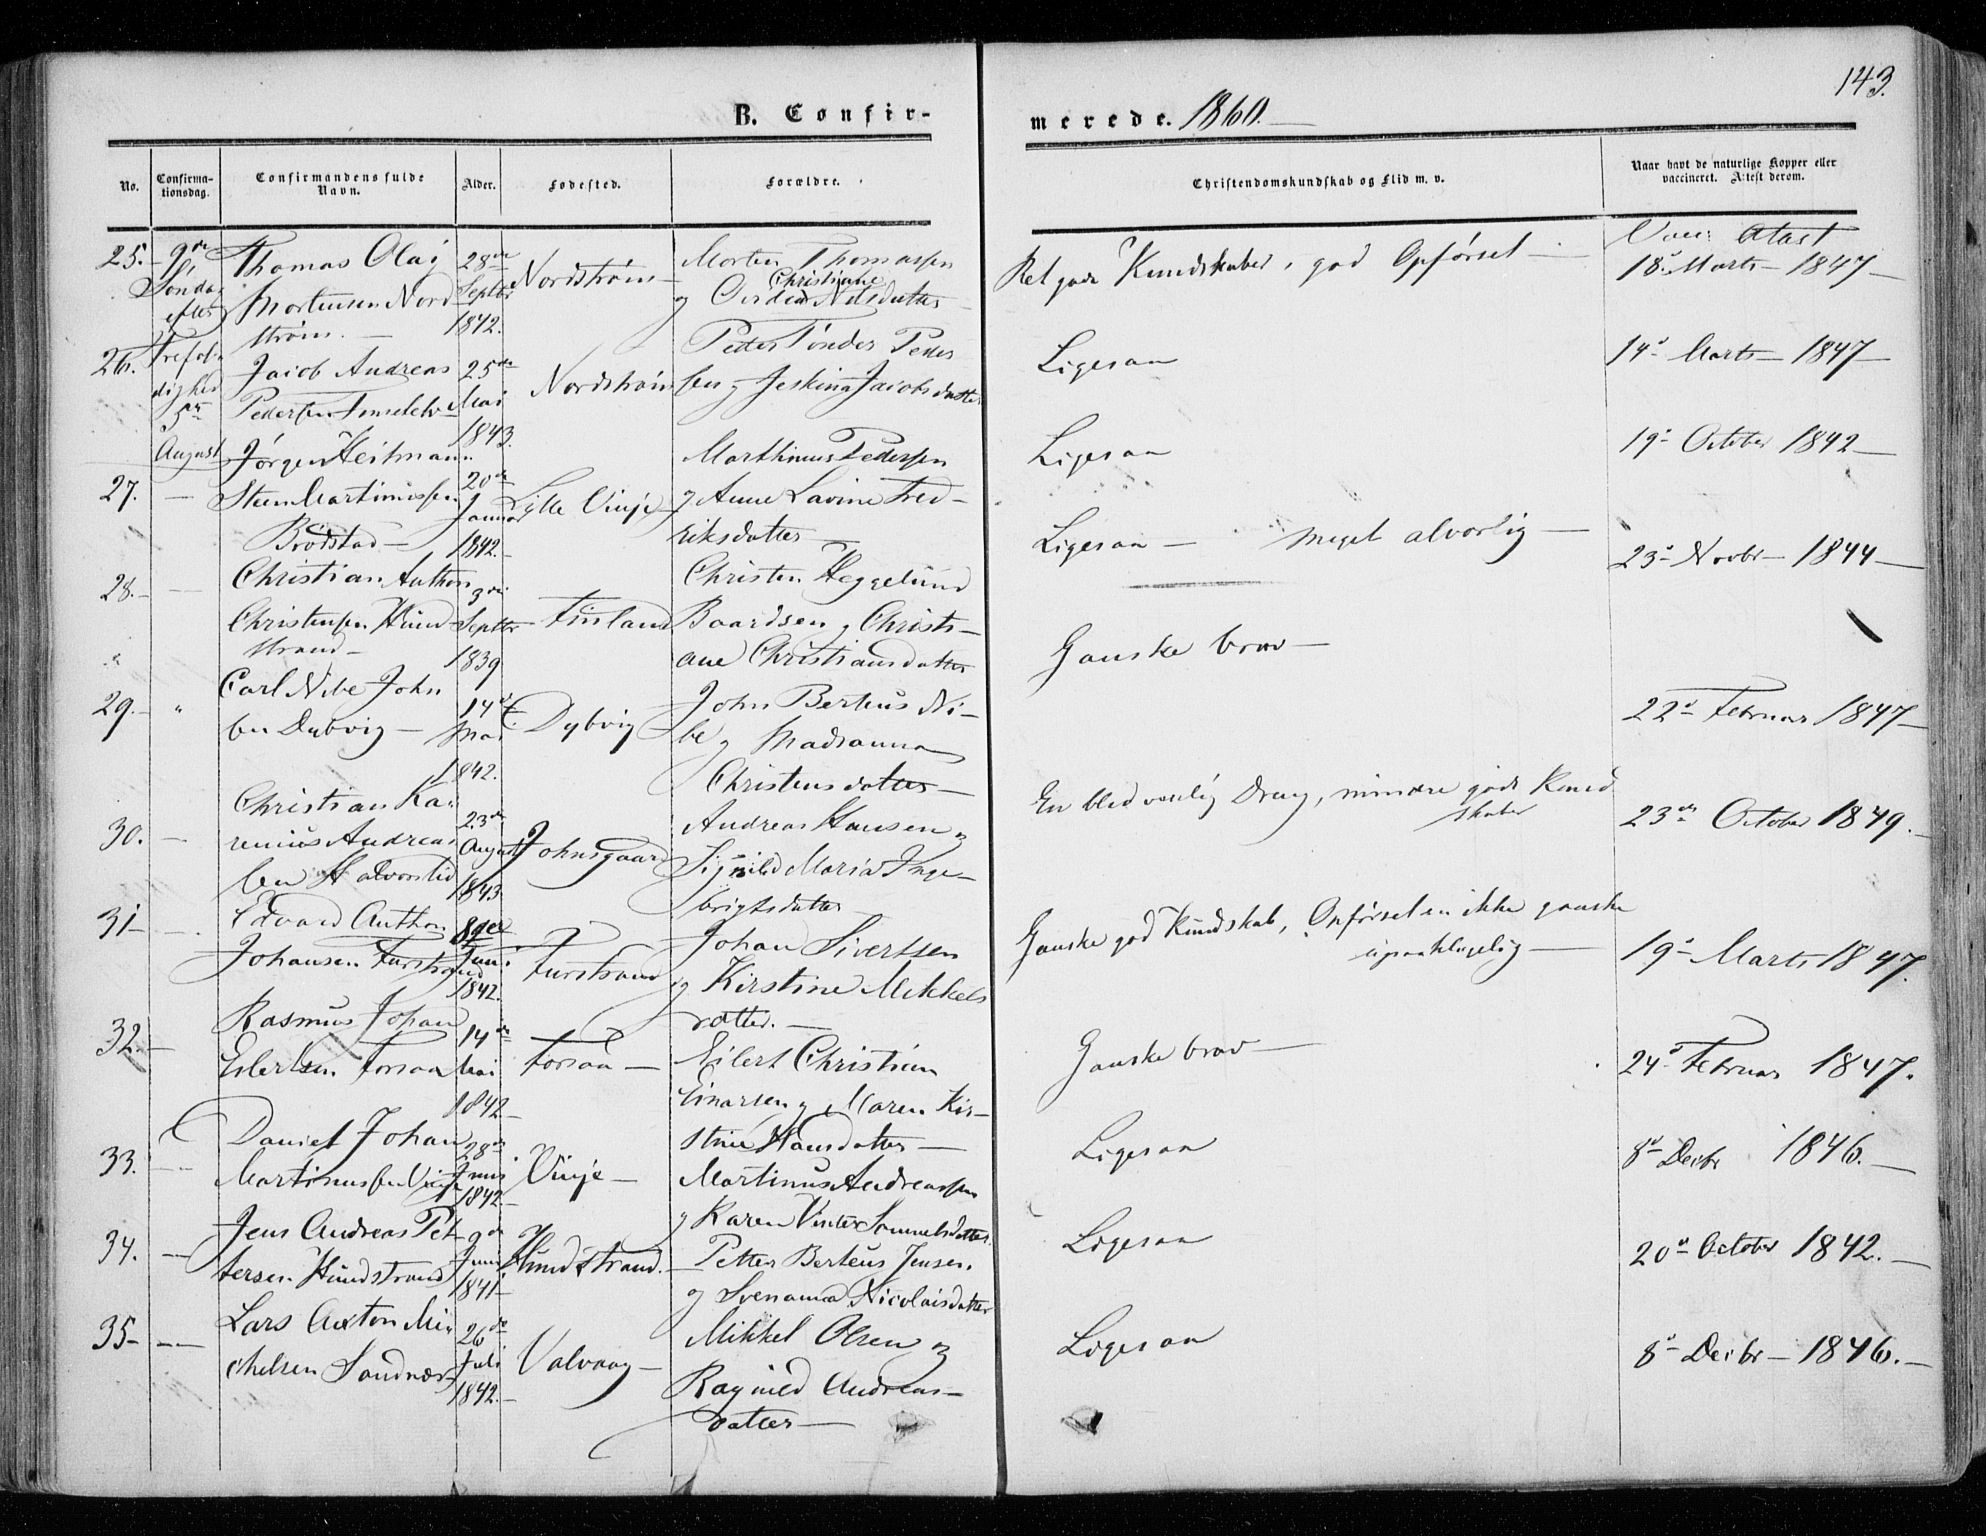 143.
B. Confir-
merede. 1860.
No.
Confirma-
tionsdag.
Confirmandens fulde
Navn.
Alder.
Fødested.
Forældre.
Christendomskundskab og Flid m. v.
Naar havt de naturlige Kopper eller
vaccineret. Attest derom.
25.
9de
Søndag
efter
Trefol-
dighed
5te
August
Thomas Olai
Mortensen Nord
strøm.
28de
Septbr
1842.
Nordstrøm
Morten Thomassen
Christiane
og Nilsdatter
Ret gode Kundskaber, god Opførsel
Vacc. Attest
18 Marts 1847
26.
Jacob Andreas
Pedersen
25de
Mai
1843.
Nordstrøm
Peder Tønder Peder
sen og Jeskina Jacobsdatter
Ligesaa
14 Marts 1847
27.
Jørgen Heitmann
Steen Martinussen
Brodstad
20de
Januar
1842.
Lille Vinje
Marthinus Pedersen
og Anne Lavine Fred-
riksdatter
Ligesaa
19 October 1842
28.
Christian Anthon
Christensen Hund
strand
3die
Septbr
1839
Finland
Christen Heggelund
Baardsen og Christi-
ane Christiansdatter
Ligesaa - meget alvorlig
23 Novbr 1844
29.
Carl Nibe John
sen Dybvig
14de
Mai
1842.
Dybvig
John Berteus Ni-
be og Madsanna
Christensdatter
Ganske brav
22 Februar 1847
30.
Christian Ka-
renius Andreas
sen Halvorslid
23de
August
1843.
Johnsgaard
Andreas Hansen og
Signild Maria Inge-
brigtsdatter
En bled venlig Dreng, mindre gode Kund
skaber
23de October 1849.
31
Edvard Anthon
Johansen Furstrand
8de
Juni
1842.
Furstrand
Johan Sivertsen
og Kirstine Mikkels
datter.
Ganske god Kundskab, Opførsel en ikke ganske
upaaklagelig
19 Marts 1847.
32.
Rasmus Johan
Eilertsen Forsaa
14de
Mai
1842
Forsaa
Eilert Christian
Einarsen og Maren Kir-
stine Hansdatter
Ganske brav
24 Februar 1847.
33.
Daniel Johan
Martinussen Vinje
28de
Juni
1842
Vinje
Martinus Andreassen
og Karen Vinter Samuelsdatter
Ligesaa
8 Decbr 1846.
34.
Jens Andreas Pet
tersen Hundstrand
9de
Juni
1841
Hundstrand.
Petter Berteus Jensen
og Svenanna Nicolaisdatter
Ligesaa
20 October 1842.
35
Lars Anton Mi-
chelsen Sandnæs
26de
Juli
1842.
Valvaag
Mikkel Olsen og
Ragnild Andreas-
datter
Ligesaa
8 Decbr 1846.